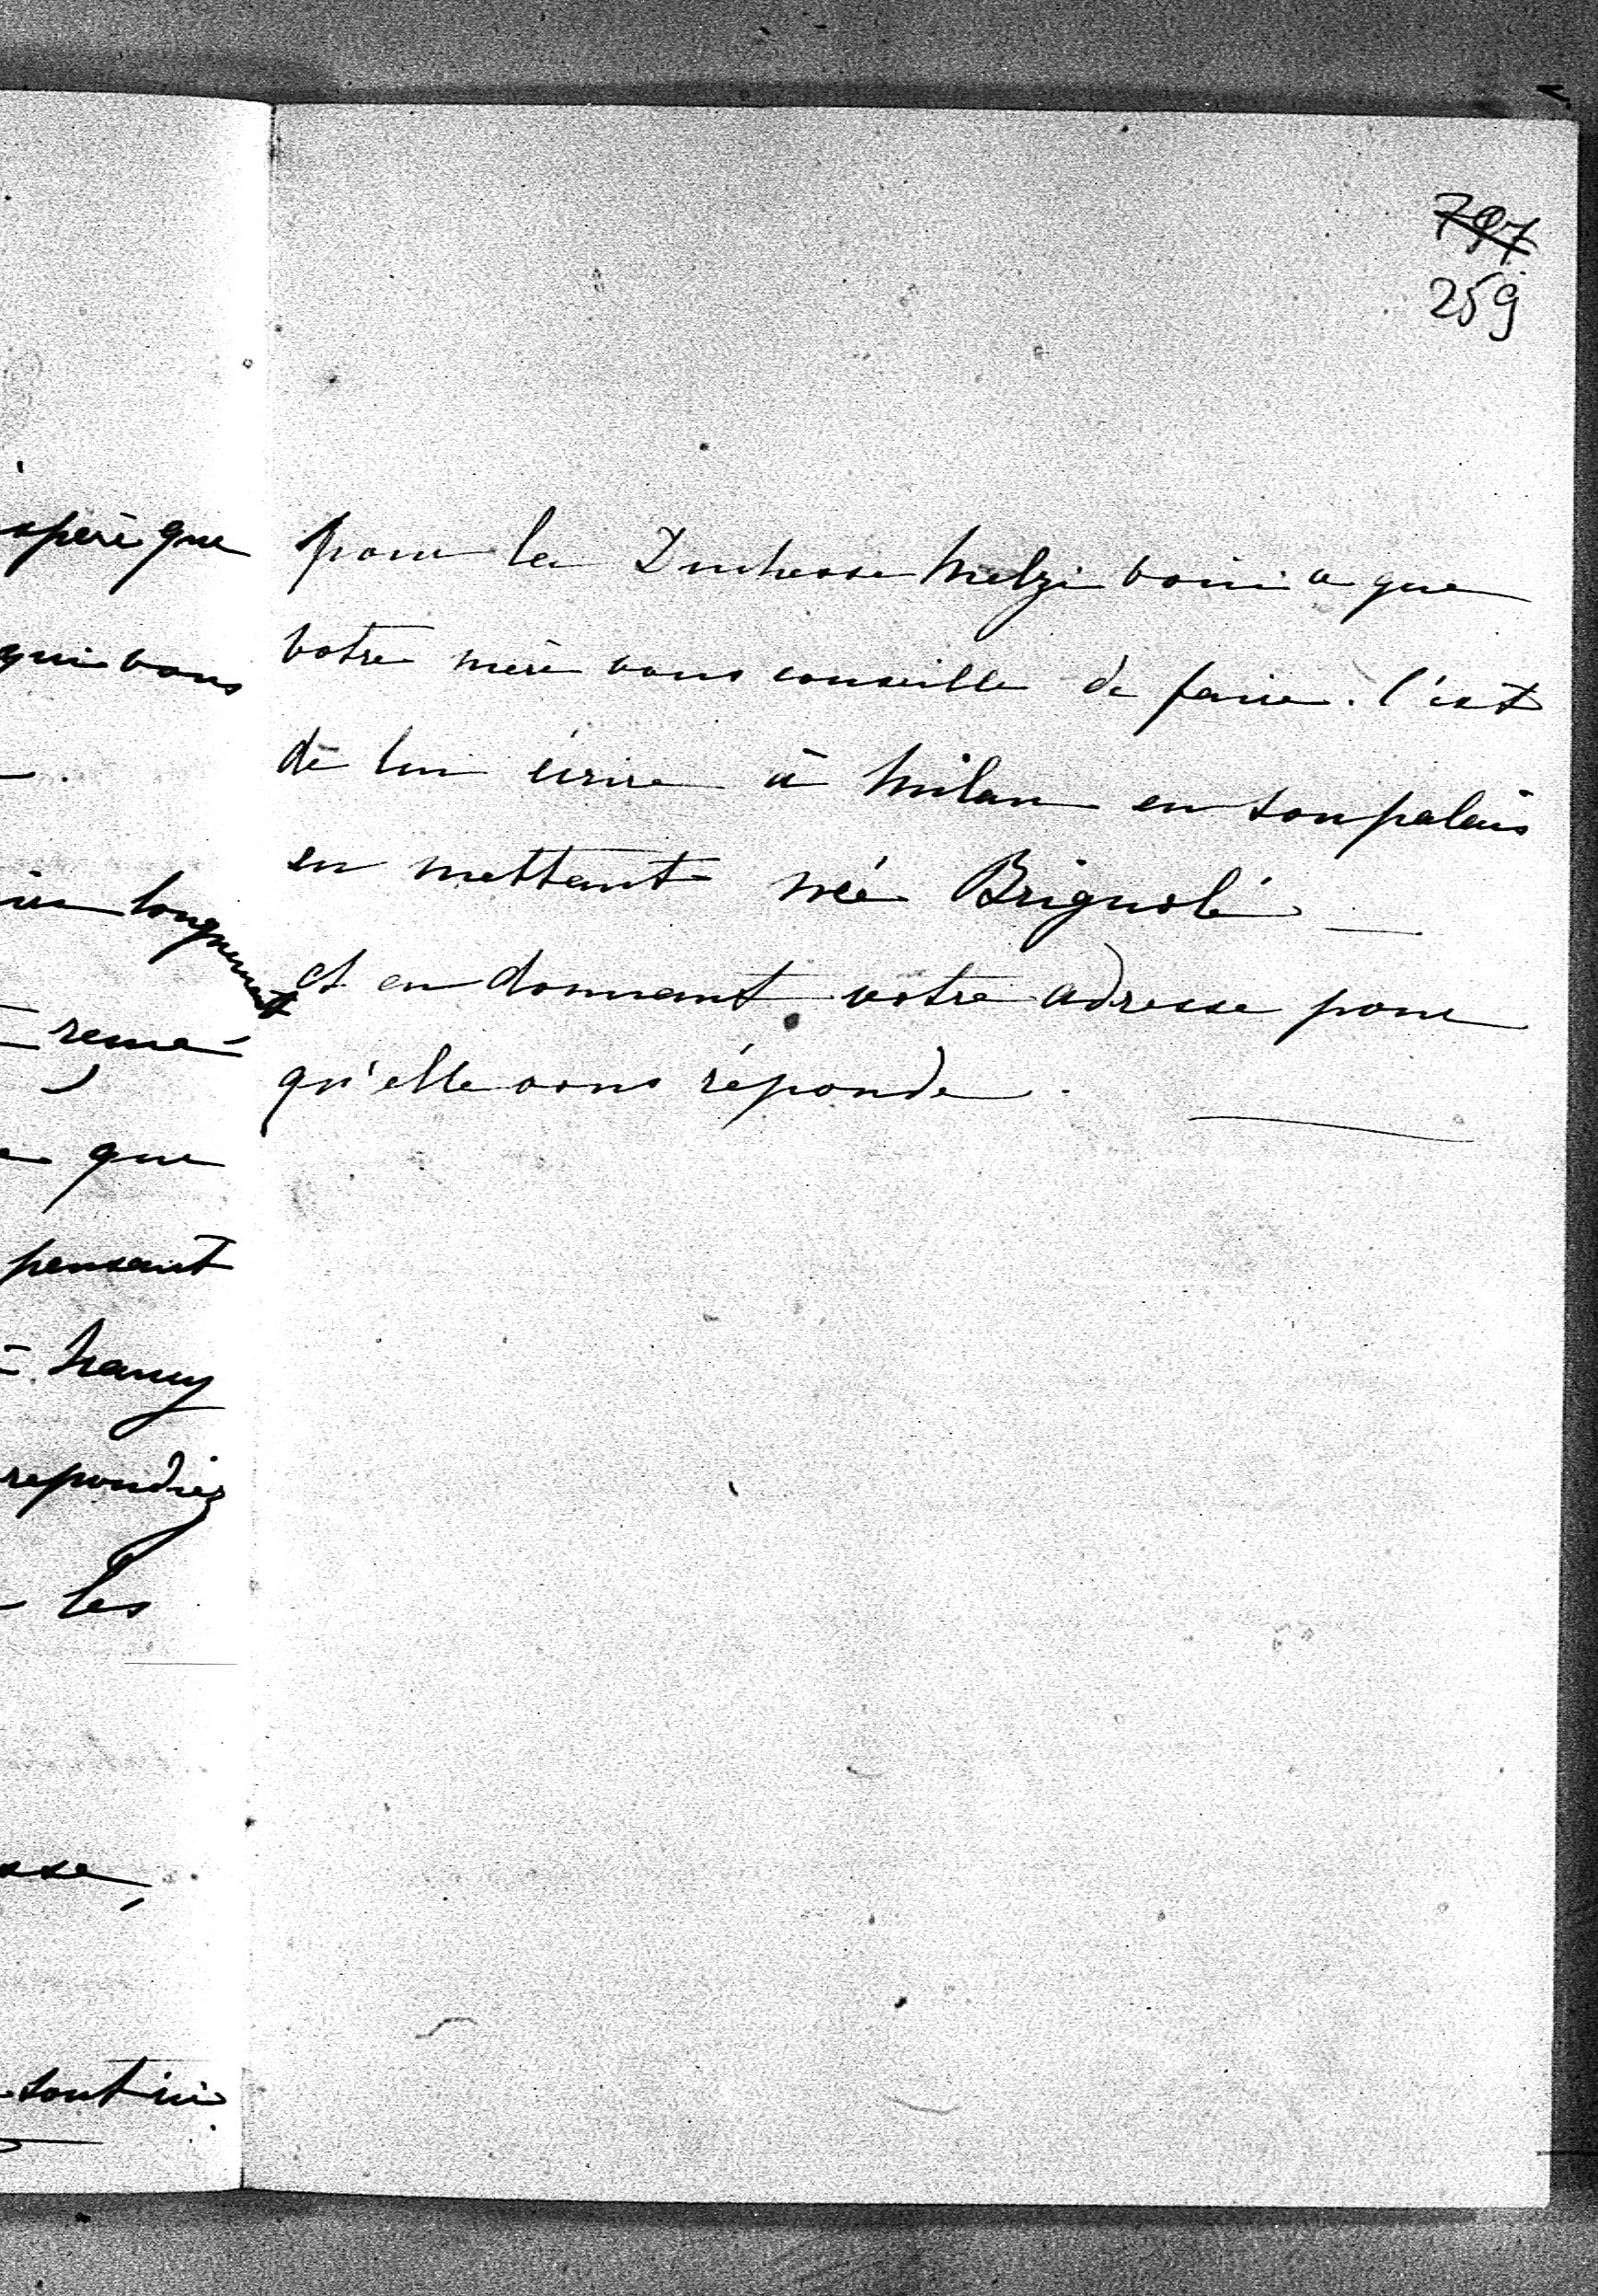 797
259
spère que
qui vous
longuement
remé
que
pensant
Nancy
repondiez
les
sse,
sont ici
pour la Duchesse Melzi voici ce que
votre mère vous conseille de faire. C'est
de lui écrire à Milan en son palais
en mettant née Brignolé
et en donnant votre adresse pour
qu'elle vous réponde.